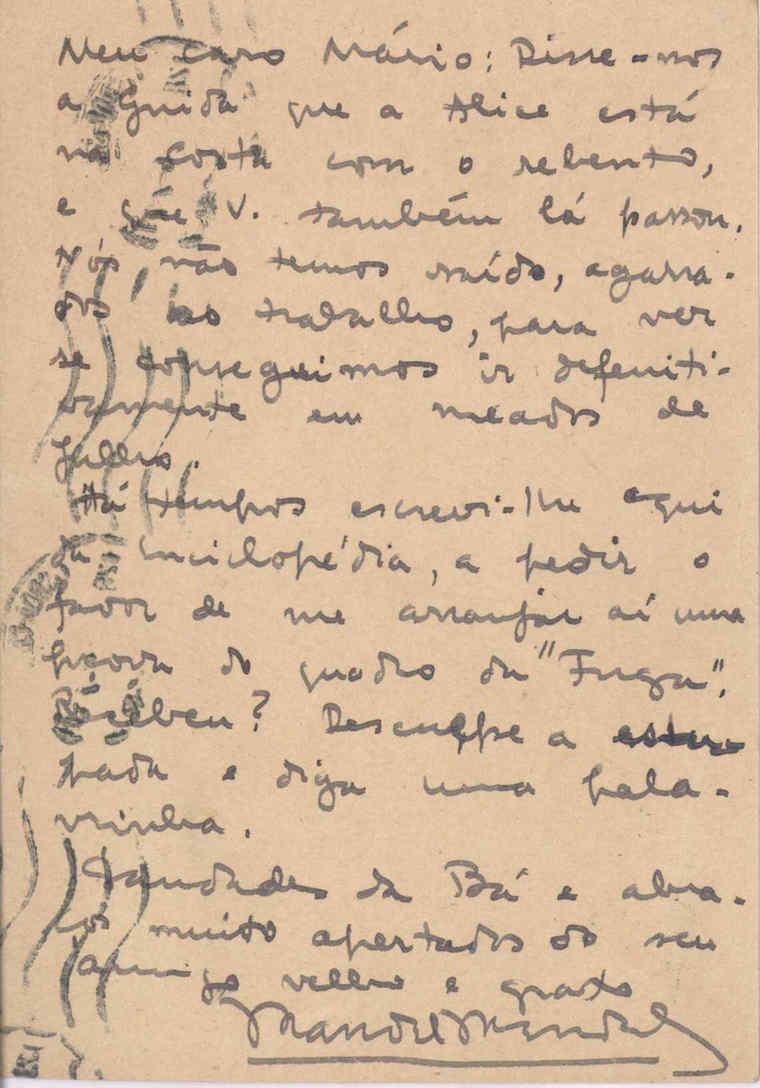 Meu caro Mário: Disse-nos
a Guida que a Alice está
na Costa com o rebento,
e que V. também lá passou.
Nós não temos saído, agarra-
dos ao trabalho, para ver
se conseguimos ir defeniti-
vamente em meados de
Julho.
Há tempos escrevi-lhe aqui
da Enciclopédia, a pedir o
favor de me arranjar aí uma
prova do quadro da "Fuga".
Recebeu? Desculpe a estu-
pada e diga uma pala-
vrinha.
Saudades da Bá e abra-
ços muito apertados do seu
amigo velho e grato
Manuel Mendes